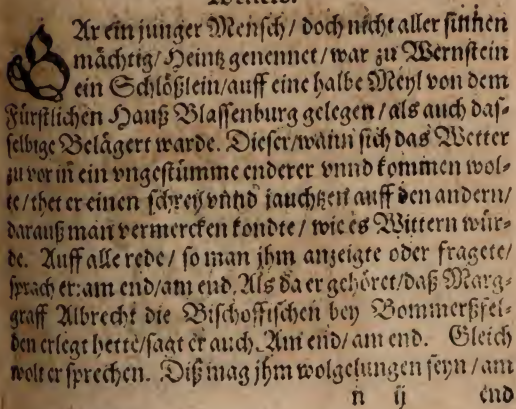 WAr ein junger Mensch / doch nicht aller sinnen
mächtig / Heintz genennet / war zu Wernstein
ein Schlößlein / auff eine halbe Meyl von dem
Fürstlichen Hauß Blassenburg gelegen / als auch das-
selbige Belägert warde. Dieser / wann sich das Wetter
zu vor in ein vngestümme enderer vnnd kommen wol-
te / thet er einen schrey vnnd jauchtzen auff den andern /
darauß man vermercken kondte / wie es Wittern wür-
de. Auff alle rede / so man jhm anzeigte oder fragete /
sprach er: am end / am end. Als da er gehöret / daß Marg-
graff Albrecht die Bischoffischen bey Bommerßfel-
den erlegt hette / sagt er auch. Am end / am end. Gleich
wolt er sprechen. Diß mag jhm wolgelungen seyn / am
n ij end